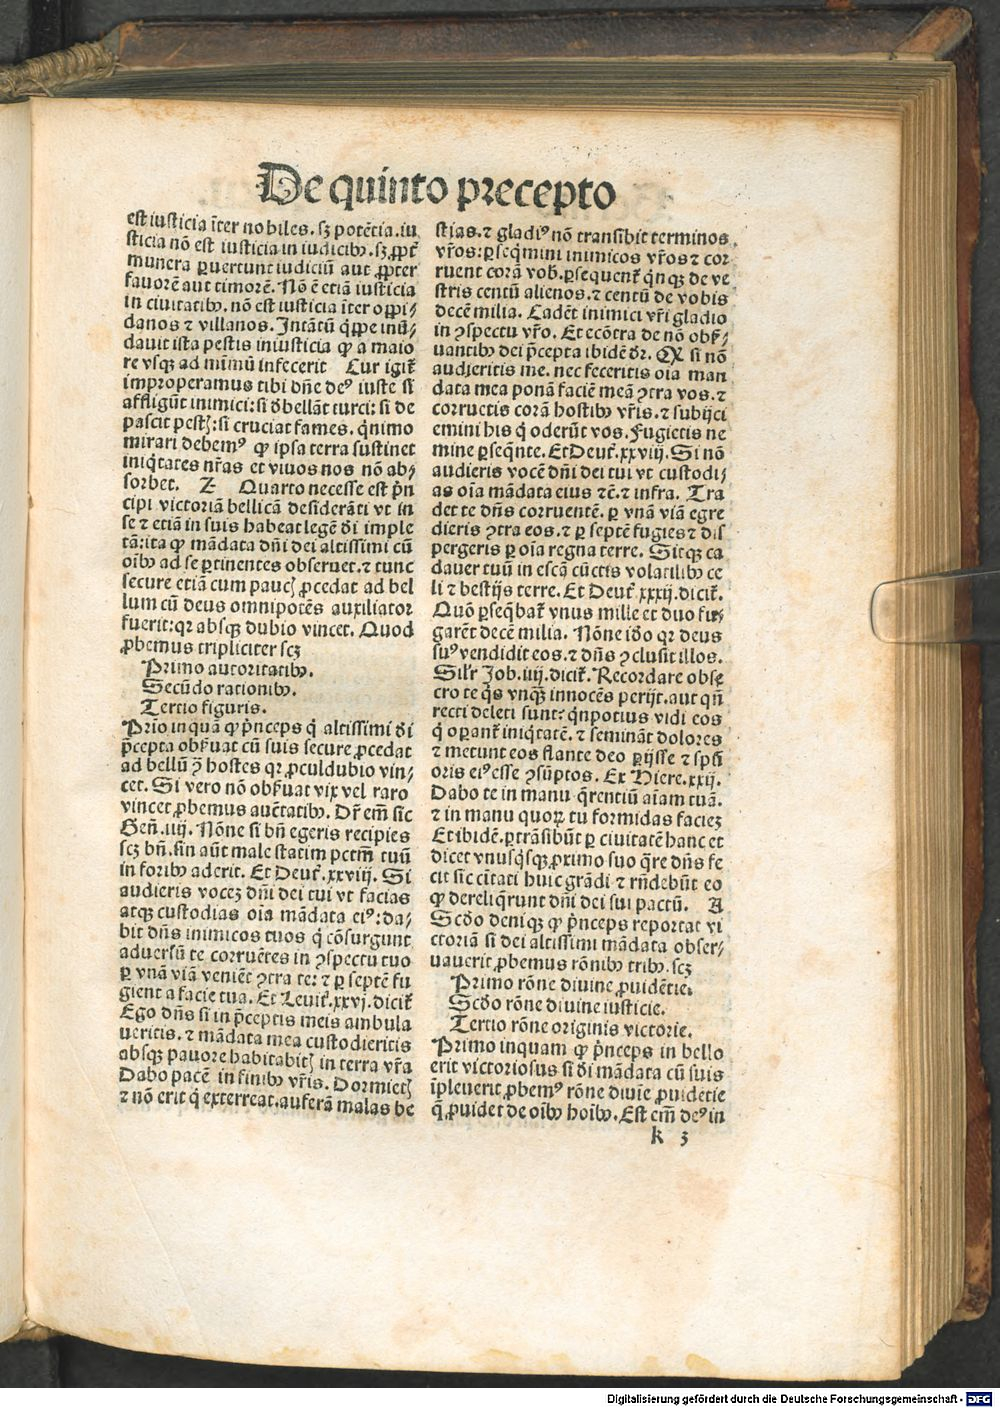 De quinto precepto
est iusticia ĩter nobiles. sꝫ potẽtia. iu
sticia nõ est iusticia in iudicibꝰ. sꝫ ꝓpt̃
munera ꝑuertunt iudiciũ aut ꝓpter
fauorẽ aut timorẽ. Nõ ẽ etiã iusticia
in ciuitatibꝰ. nõ est iusticia ĩter oppi⸗
danos ⁊ villanos. Intãtũ q̃ppe inũ⸗
dauit ista pestis iniusticia ꝙ a maio
re vsqꝫ ad mimũ infecerit Cur igit̃
improperamus tibi dñe deꝰ iuste si
affligũt inimici: si ꝺbellãt turci: si de
pascit pestꝫ: si cruciat fames. q̃nimo
mirari debemꝰ ꝙ ipsa terra sustinet
iniq̃tates nr̃as et viuos nos nõ ab⸗
sorbet. Z Quarto necesse est p̃n
cipi victoriã bellicã desiderãti vt in
se ⁊ etiã in suis habeat legẽ ꝺi imple
tã: ita ꝙ mãdata dñi dei altissimi cũ
oĩbꝰ ad se ꝑtinentes obseruet. ⁊ tunc
secure etiã cum paucꝫ ꝓcedat ad bel
lum cũ deus omnipotẽs auxiliator
fuerit: qꝛ absqꝫ dubio vincet. Quod
ꝓbemus tripliciter scꝫ
Primo autoritatibꝰ.
Secũdo rationibꝰ.
Tertio figuris.
Prĩo inquã ꝙ p̃nceps q̃ altissimi ꝺi
p̃cepta obẜuat cũ suis secure ꝓcedat
ad bellũ ꝯ̃ hostes qꝛ ꝓculdubio vin⸗
cet. Si vero nõ obẜuat vix vel raro
vincet ꝓbemus auc̃tatibꝰ. Dr̃ em̃ sic
Geñ. iiij. Nõne si bñ egeris recipies
scꝫ bñ. sin aũt male statim pctm̃ tuũ
in foribꝰ aderit. Et Deut̃. xxviij. Si
audieris vocez dñi dei tui vt facias
atqꝫ custodias oĩa mãdata eiꝰ: da⸗
bit dñs inimicos tuos q̃ cõsurgunt
aduersũ te corruẽtes in ꝯspectu tuo
ꝑ vnã viã veniẽt ꝯtra te: ⁊ ꝑ septẽ fu
gient a facie tua. Et Leuit̃. xxvj. dicit̃
Ego dñs si in p̃ceptis meis ambula
ueritis. ⁊ mãdata mea custodieritis
absqꝫ pauore habitabitꝫ in terra vr̃a
Dabo pacẽ in finibꝰ vr̃is. Dormietꝫ
⁊ nõ erit q̃ exterreat. auferã malas be
stias. ⁊ gladiꝰ nõ transibit terminos
vr̃os: ꝑseq̃mini inimicos vr̃os ⁊ cor
ruent corã vob̃. ꝑsequent̃ q̃nqꝫ de ve
stris centũ alienos. ⁊ centũ de vobis
decẽ milia. Cadẽt inimici vr̃i gladio
in ꝯspectu vr̃o. Et ecõtra de nõ obẜ⸗
uantibꝰ dei p̃cepta ibidẽ ꝺr̃. Ꝙ si nõ
audieritis me. nec feceritis oĩa man
data mea ponã faciẽ meã ꝯtra vos. ⁊
corruetis corã hostibꝰ vr̃is. ⁊ subijci
emini his q̃ oderũt vos. Fugietis ne
mine ꝑseq̃nte. Et Deut̃. xxviij. Si nõ
audieris vocẽ dñi dei tui vt custodi⸗
as oĩa mãdata eius ⁊c̃. ⁊ infra. Tra
det te dñs corruentẽ. ꝑ vnã viã egre
dieris ꝯtra eos. ⁊ ꝑ septẽ fugies ⁊ dis
pergeris ꝑ oĩa regna terre. Sitqꝫ ca
dauer tuũ in escã cũctis volatilibꝰ ce
li ⁊ bestijs terre. Et Deut̃. xxxij. dicit̃.
Quõ ꝑseq̃bat̃ vnus mille et duo fu⸗
garẽt decẽ milia. Nõne iꝺo qꝛ deus
suꝰ vendidit eos. ⁊ dñs ꝯclusit illos.
Sil̃r Job. iiij. dicit̃. Recordare obse
cro te q̃s vnqꝫ̃ innocẽs perijt. aut qñ
recti deleti sunt: q̃npotius vidi eos
q̃ oꝑant̃ iniq̃tatẽ. ⁊ seminãt dolores
⁊ metunt eos flante deo ꝑijsse ⁊ sp̃ũ
oris eiꝰ esse ꝯsũptos. Ex Hiere. xxij.
Dabo te in manu q̃rentiũ aĩam tuã.
⁊ in manu quoꝝ tu formidas faciez
Et ibidẽ. ꝑtrãsibũt ꝑ ciuitatẽ hanc et
dicet vnusq̃sqꝫ ꝓximo suo q̃re dñs fe
cit sic ci̅tati huic grãdi ⁊ rñdebũt eo
ꝙ dereliq̃runt dñi dei sui pactũ. A
Scꝺo deniqꝫ ꝙ p̃nceps reportat vi
ctoriã si dei altissimi mãdata obser⸗
uauerit ꝓbemus rõnibꝰ tribꝰ. scꝫ
Primo rõne diuine ꝓuidẽtie.
Scꝺo rõne diuine iusticie.
Tertio rõne originis victorie.
Primo inquam ꝙ p̃nceps in bello
erit victoriosus si ꝺi mãdata cũ suis
ĩpleuerit ꝓbemꝰ rõne diuĩe ꝓuidẽtie
q̃ ꝓuidet de oĩbꝰ hoĩbꝰ. Est em̃ deꝰ in
k 3
Digitalisierung gefördert durch die Deutsche Forschungsgemeinschaft - DFG